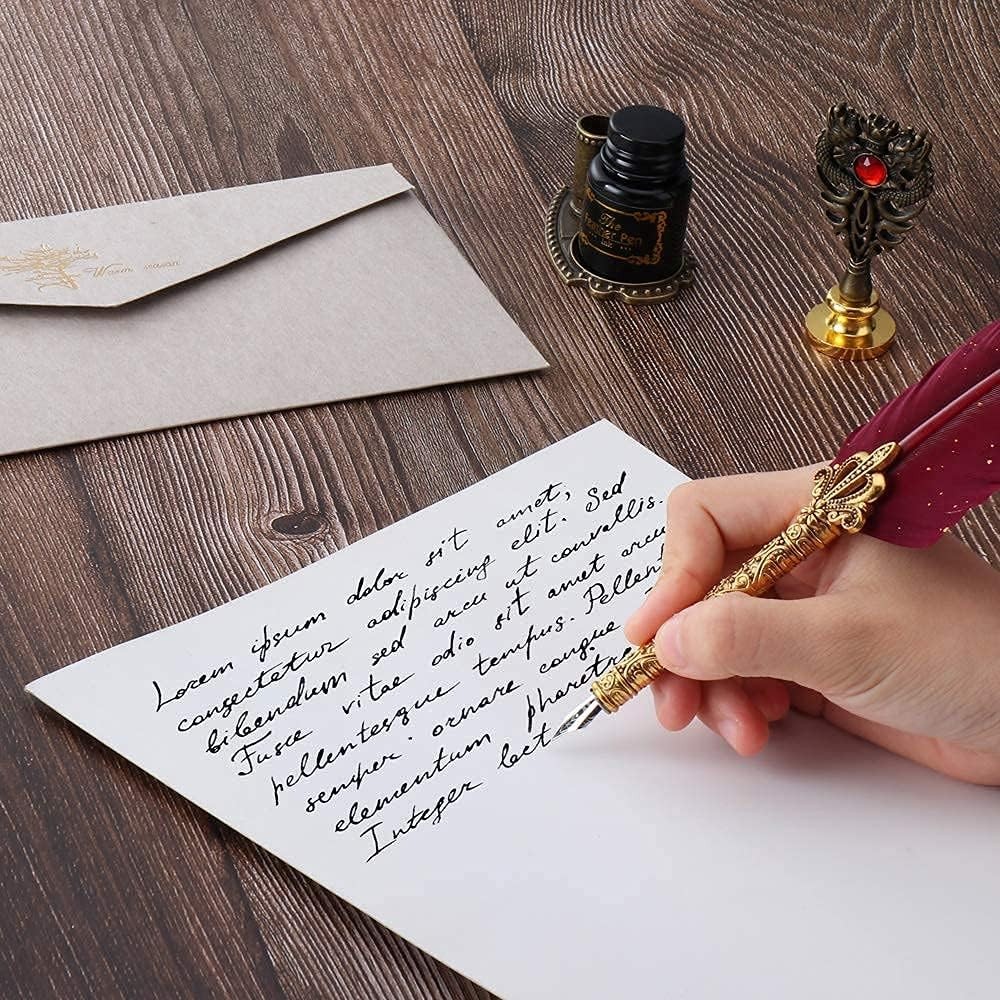 Warm season
The
Feather Pen
ink
Lorem ipsum dolor sit amet,
consectetur adipiscing elit. Sed
bibendum sed arcu ut convallis.
Fusce vitae odio sit amet arcu
pellentesque tempus. Pellent
semper. ornare congue
elementum pharetra
Integer lect